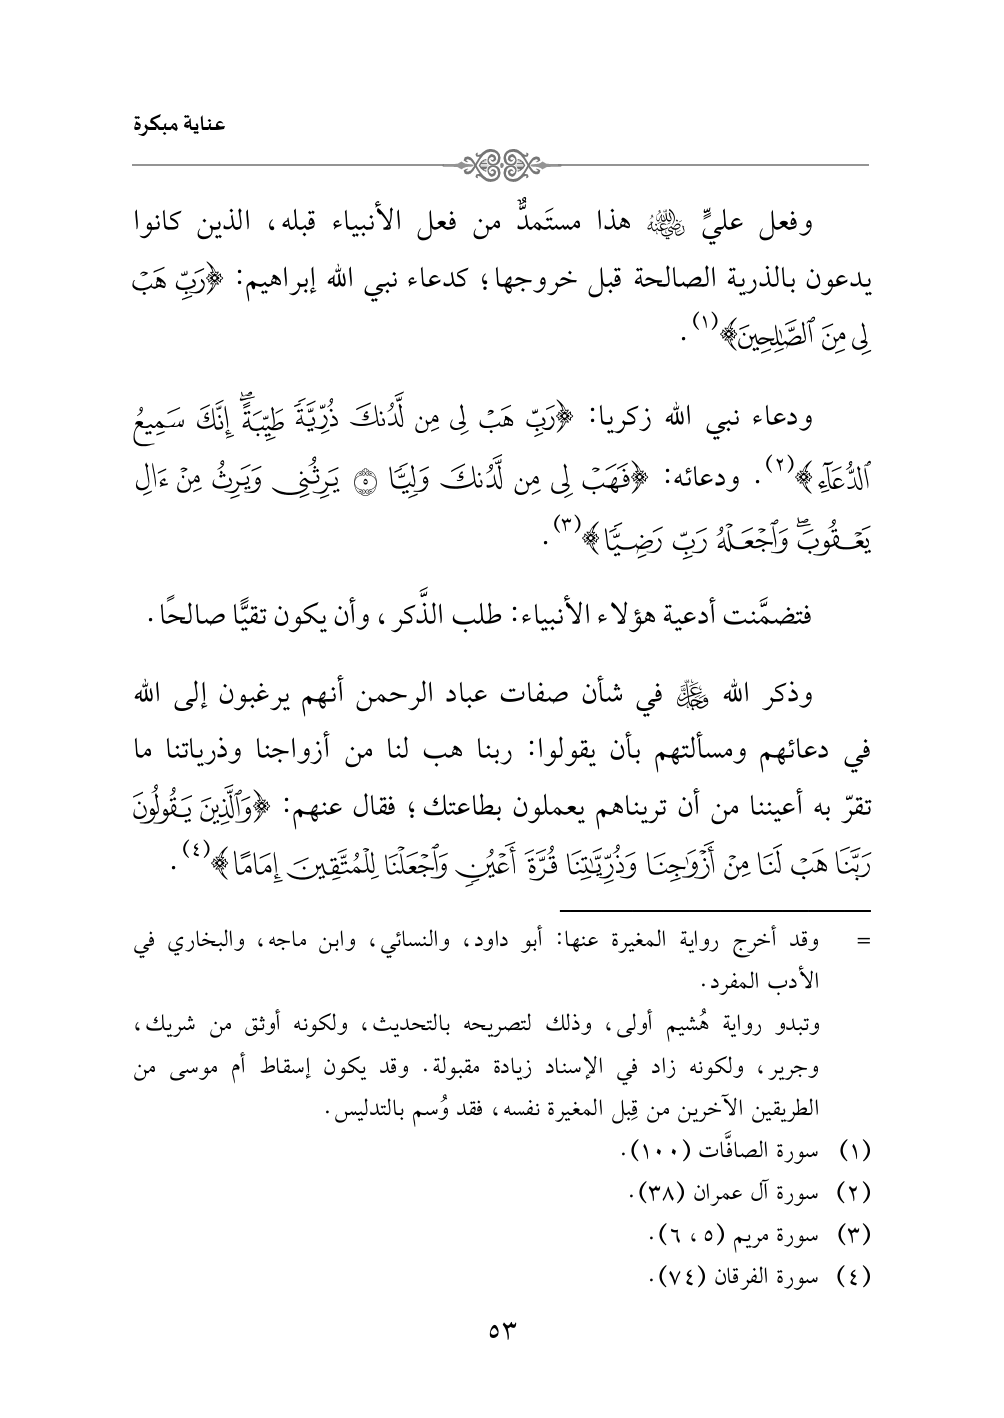 عناية مبكرة
وفعل عليٍّ رضي الله عنه هذا مستَمدٌّ من فعل الأنبياء قبله، الذين كانوا
يدعون بالذرية الصالحة قبل خروجها؛ كدعاء نبي الله إبراهيم: ﴿رَبِّ هَبۡ
لِي مِنَ ٱلصَّٰلِحِينَ﴾(١).
ودعاء نبي الله زكريا: ﴿رَبِّ هَبۡ لِي مِن لَّدُنكَ ذُرِّيَّةٗ طَيِّبَةًۖ إِنَّكَ سَمِيعُ
ٱلدُّعَآءِ﴾(٢). ودعائه: ﴿فَهَبۡ لِي مِن لَّدُنكَ وَلِيّٗا ۝٥ يَرِثُنِي وَيَرِثُ مِنۡ ءَالِ
يَعۡقُوبَۖ وَٱجۡعَلۡهُ رَبِّ رَضِيّٗا﴾(٣).
فتضمَّنت أدعية هؤلاء الأنبياء: طلب الذَّكر، وأن يكون تقيًّا صالحًا.
وذكر الله عز وجل في شأن صفات عباد الرحمن أنهم يرغبون إلى الله
في دعائهم ومسألتهم بأن يقولوا: ربنا هب لنا من أزواجنا وذرياتنا ما
تقرّ به أعيننا من أن تريناهم يعملون بطاعتك؛ فقال عنهم: ﴿وَٱلَّذِينَ يَقُولُونَ
رَبَّنَا هَبۡ لَنَا مِنۡ أَزۡوَٰجِنَا وَذُرِّيَّٰتِنَا قُرَّةَ أَعۡيُنٖ وَٱجۡعَلۡنَا لِلۡمُتَّقِينَ إِمَامًا﴾(٤).
= وقد أخرج رواية المغيرة عنها: أبو داود، والنسائي، وابن ماجه، والبخاري في
الأدب المفرد.
وتبدو رواية هُشيم أولى، وذلك لتصريحه بالتحديث، ولكونه أوثق من شريك،
وجرير، ولكونه زاد في الإسناد زيادة مقبولة. وقد يكون إسقاط أم موسى من
الطريقين الآخرين من قِبل المغيرة نفسه، فقد وُسم بالتدليس.
(١) سورة الصافَّات (١٠٠).
(٢) سورة آل عمران (٣٨).
(٣) سورة مريم (٥، ٦).
(٤) سورة الفرقان (٧٤).
٥٣